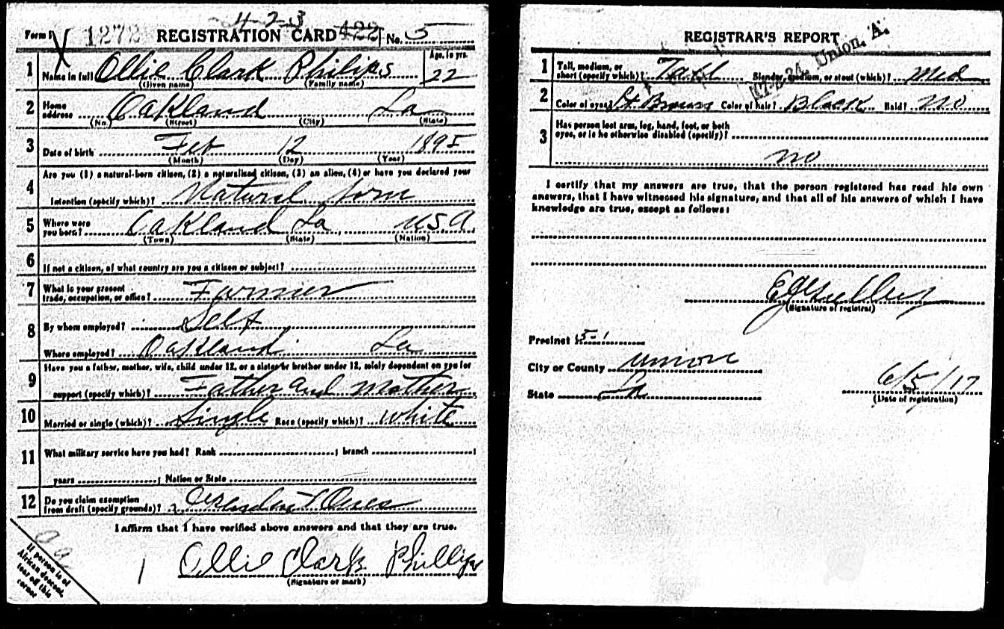 4-2-3
Form 1 1272 REGISTRATION CARD 422 No. 5
1 Name in full Ollie Clark Philips Age, in yrs. 22
(Given name) (Family name)
2 Home address Oakland La
(No.) (Street) (City) (State)
3 Date of birth Feb 12 1895
(Month) (Day) (Year)
4 Are you (1) a natural-born citizen, (2) a naturalized citizen, (3) an alien, (4) or have you declared your
intention (specify which)? Natural born
5 Where were you born? Oakland La USA
(Town) (State) (Nation)
6 If not a citizen, of what country are you a citizen or subject?
7 What is your present trade, occupation, or office? Farmer
8 By whom employed? Self
Where employed? Oakland La
9 Have you a father, mother, wife, child under 12, or a sister or brother under 12, solely dependent on you for
support (specify which)? Father and mother
10 Married or single (which)? Single Race (specify which)? white
11 What military service have you had? Rank ; branch ;
years ; Nation or State
12 Do you claim exemption from draft (specify grounds)? Ones
I affirm that I have verified above answers and that they are true.
1 Ollie Clark Phillips
(Signature or mark)
If person is of
African descent,
tear off this
corner
REGISTRAR'S REPORT
17-2-24. Union, A.
1 Tall, medium, or short (specify which)? Tall Slender, medium, or stout (which)? Med
2 Color of eyes? Lt Brown Color of hair? Black Bald? No
3 Has person lost arm, leg, hand, foot, or both
eyes, or is he otherwise disabled (specify)?
no
I certify that my answers are true, that the person registered has read his own
answers, that I have witnessed his signature, and that all of his answers of which I have
knowledge are true, except as follows:
(Signature of registrar)
Precinct 5-1
City or County Union
State La 6/5/17
(Date of registration)